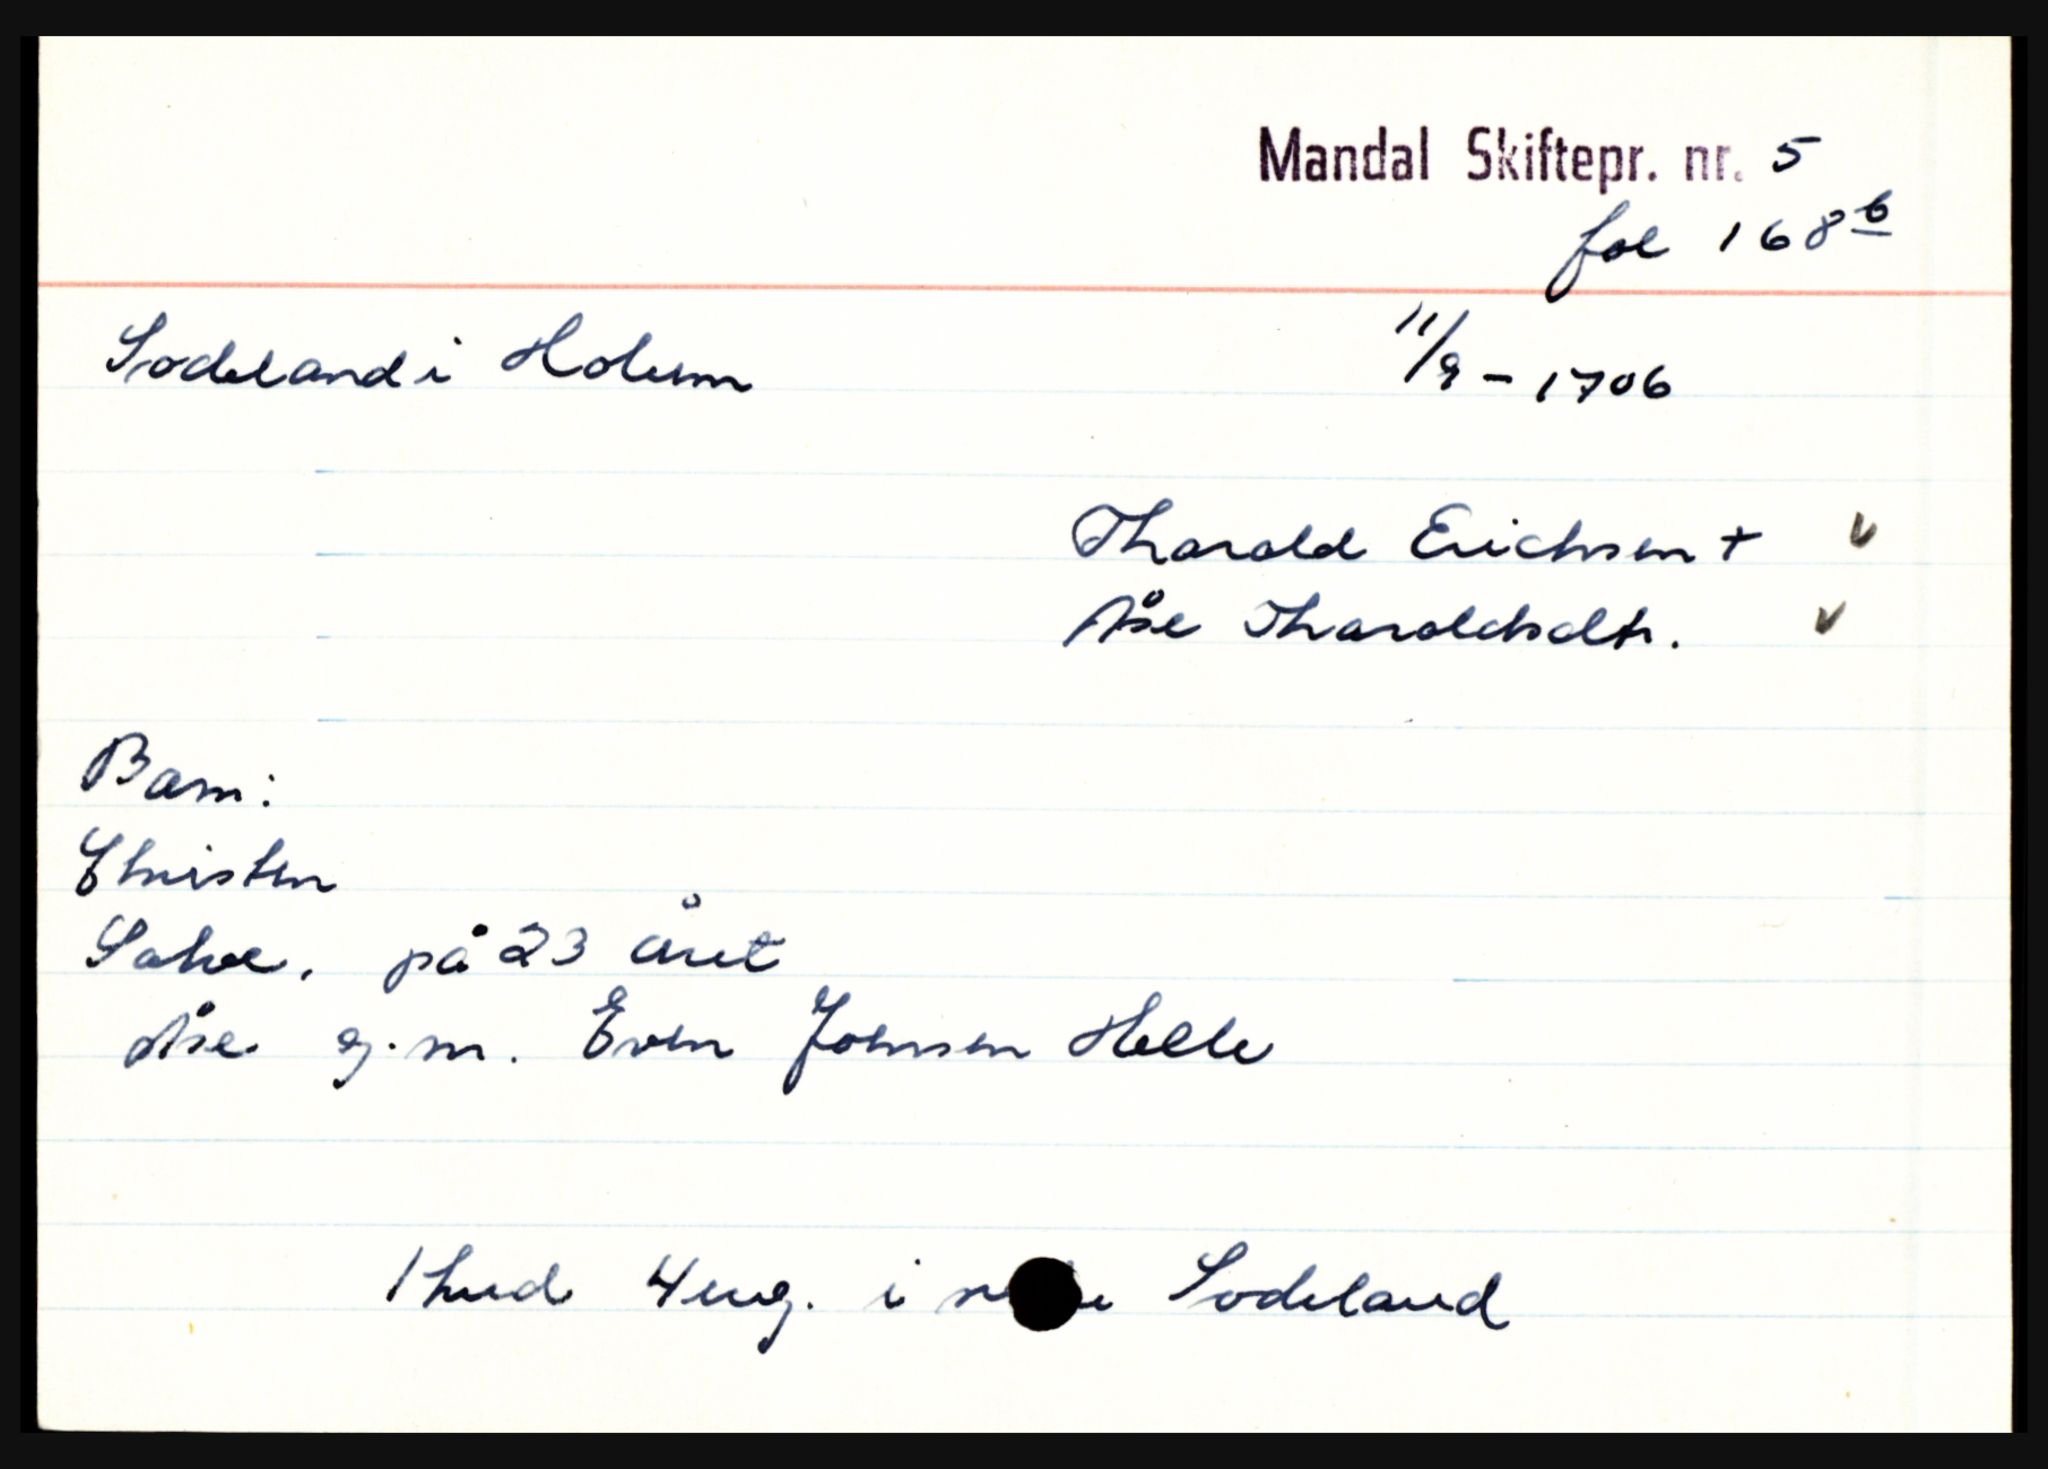 Mandal Skiftepr. nr. 5
fol 168 b
Sodeland i Holum 11/9 - 1706
Tharald Erichsen +
Åse Tharaldsdtr.
Barn:
Christen
Salve. på 23 året
Åse g.m. Even Joensen Helle
1 hud 4 eng. i Sodeland